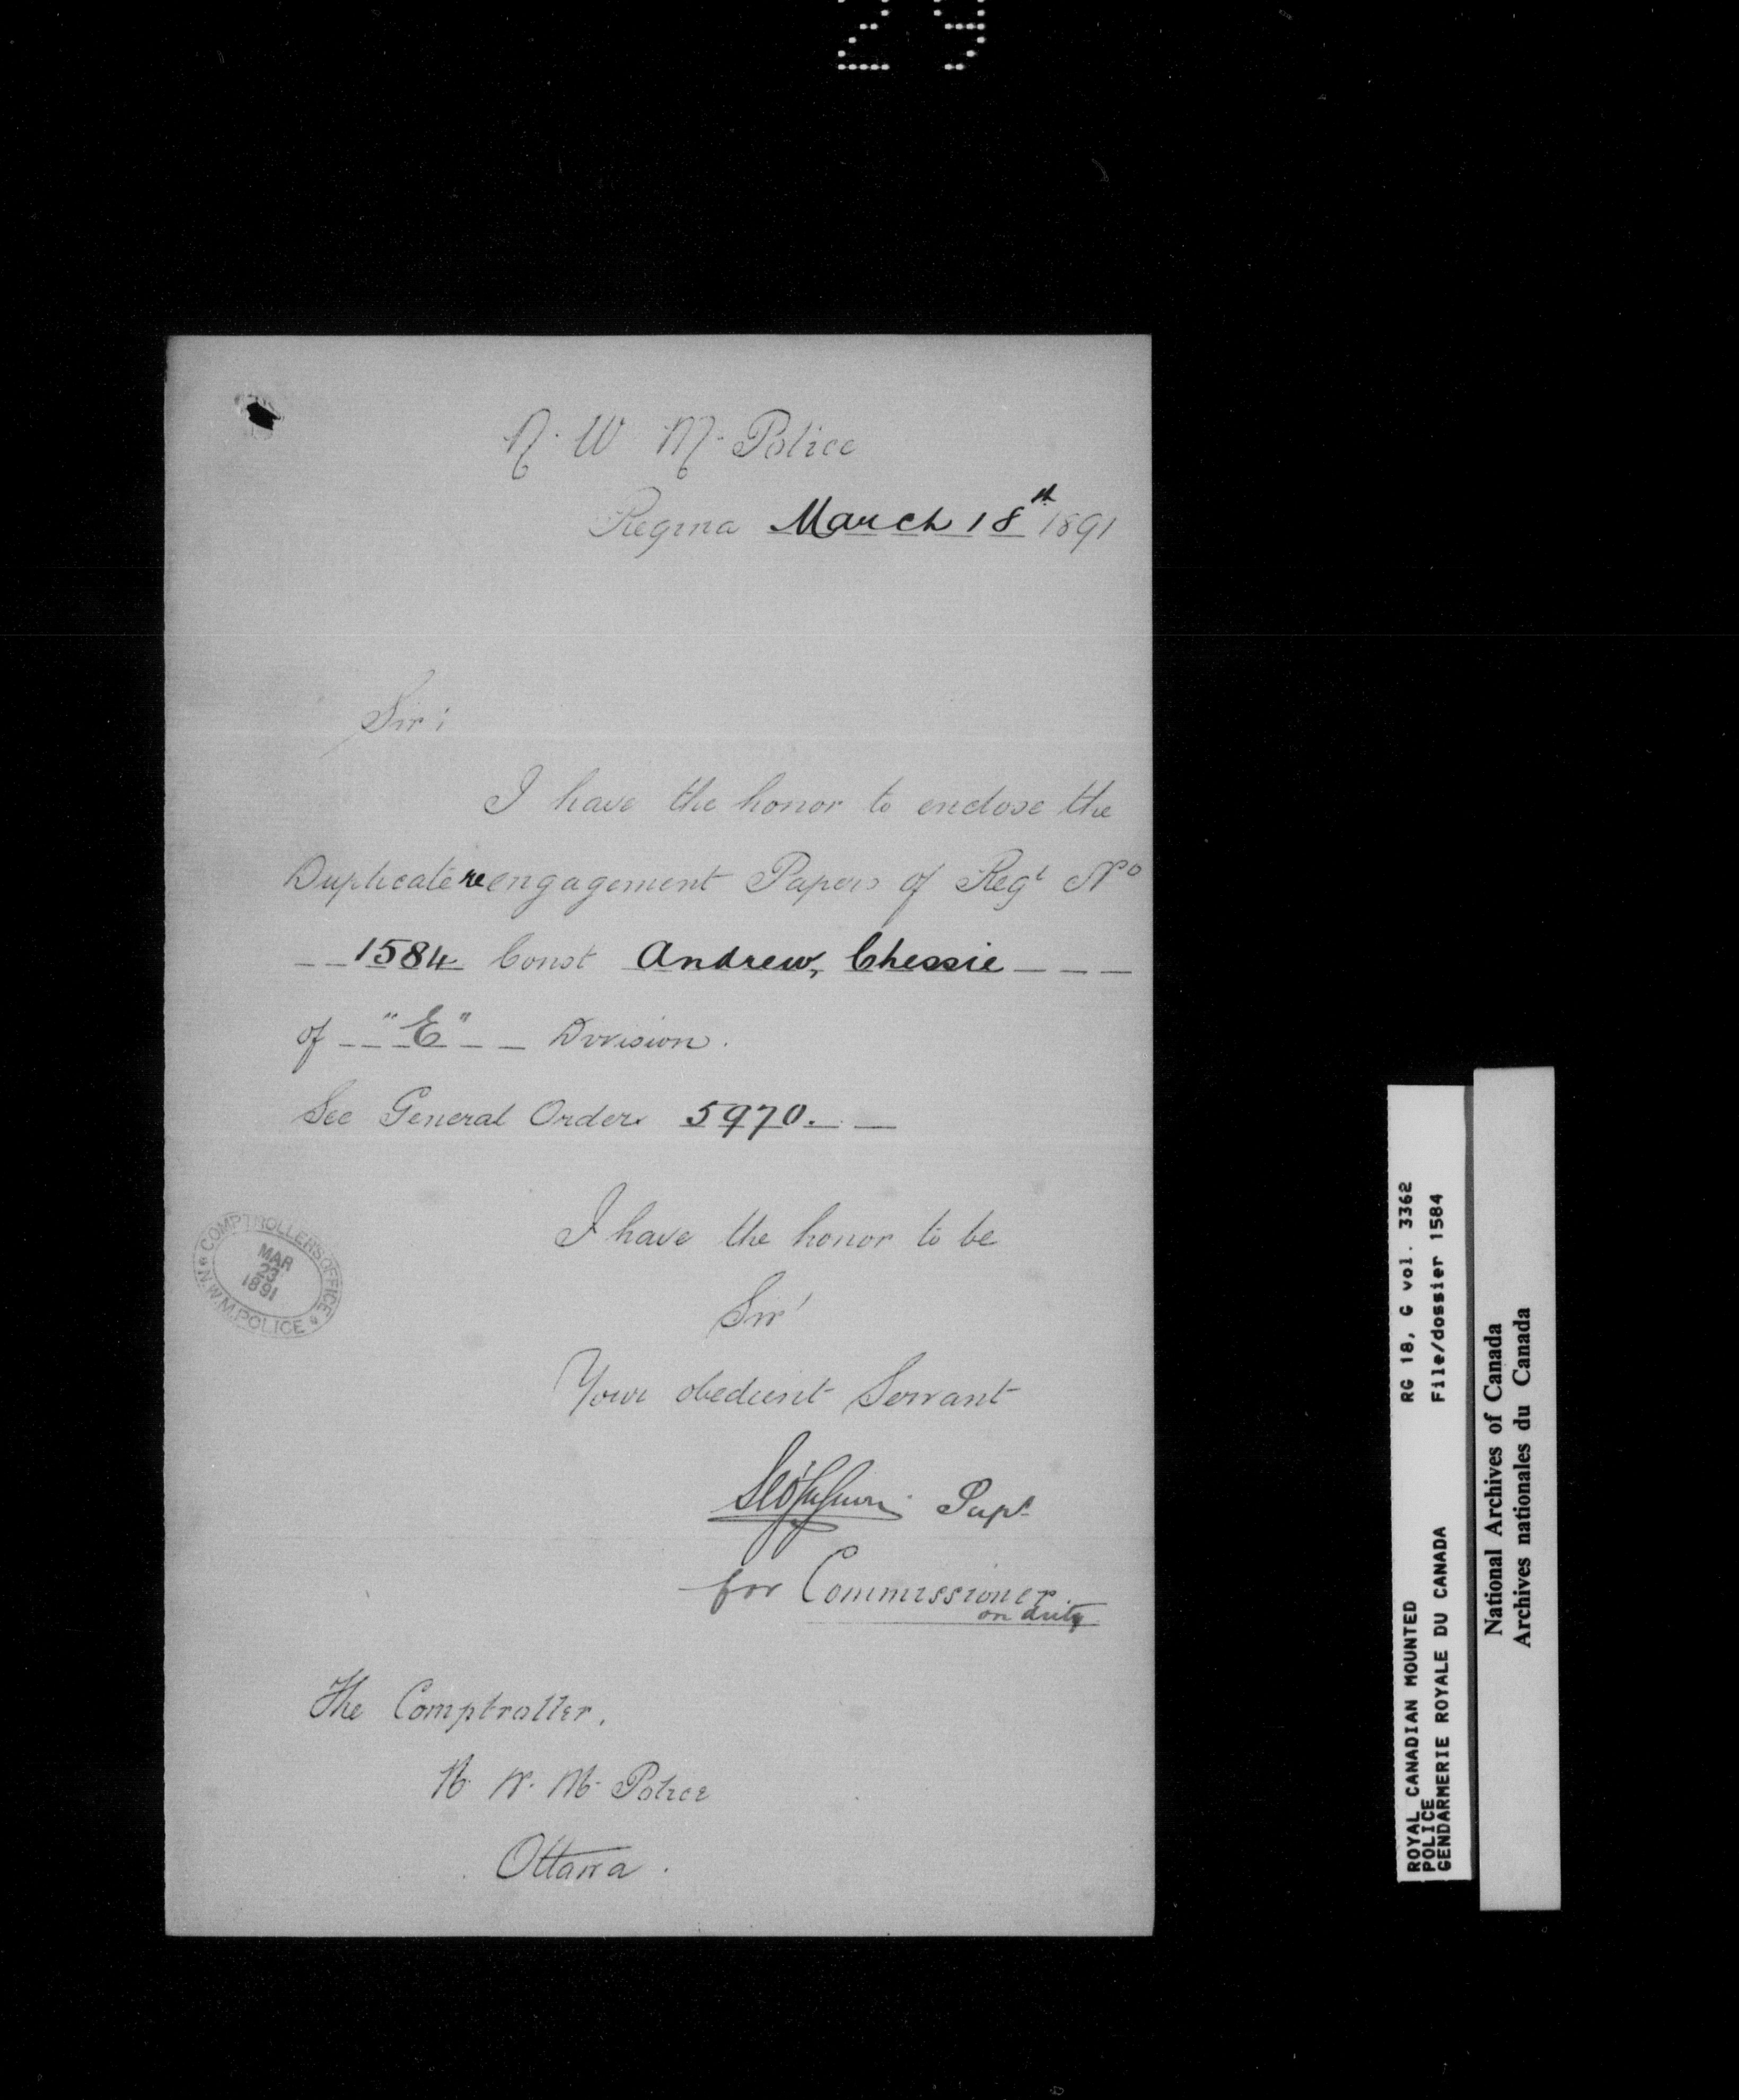 29
N. W. M. Police
Regina March 18th 1891
Sir:
I have the honor to enclose the
Duplicate re engagement Papers of Regt No
1584 Const Andrew, Chessie
of "E" Division.
See General Orders 5970.
COMPTROLLERS OFFICE
MAR
23
1891
N.W.M. POLICE
I have the honor to be
Sir
Your obedient Servant
Supt
for Commissioner.
on duty
The Comptroller,
N. W. M. Police
Ottawa.
ROYAL CANADIAN MOUNTED RG 18, G vol. 3362
POLICE File/dossier 1584
GENDARMERIE ROYALE DU CANADA
National Archives of Canada
Archives nationales du Canada